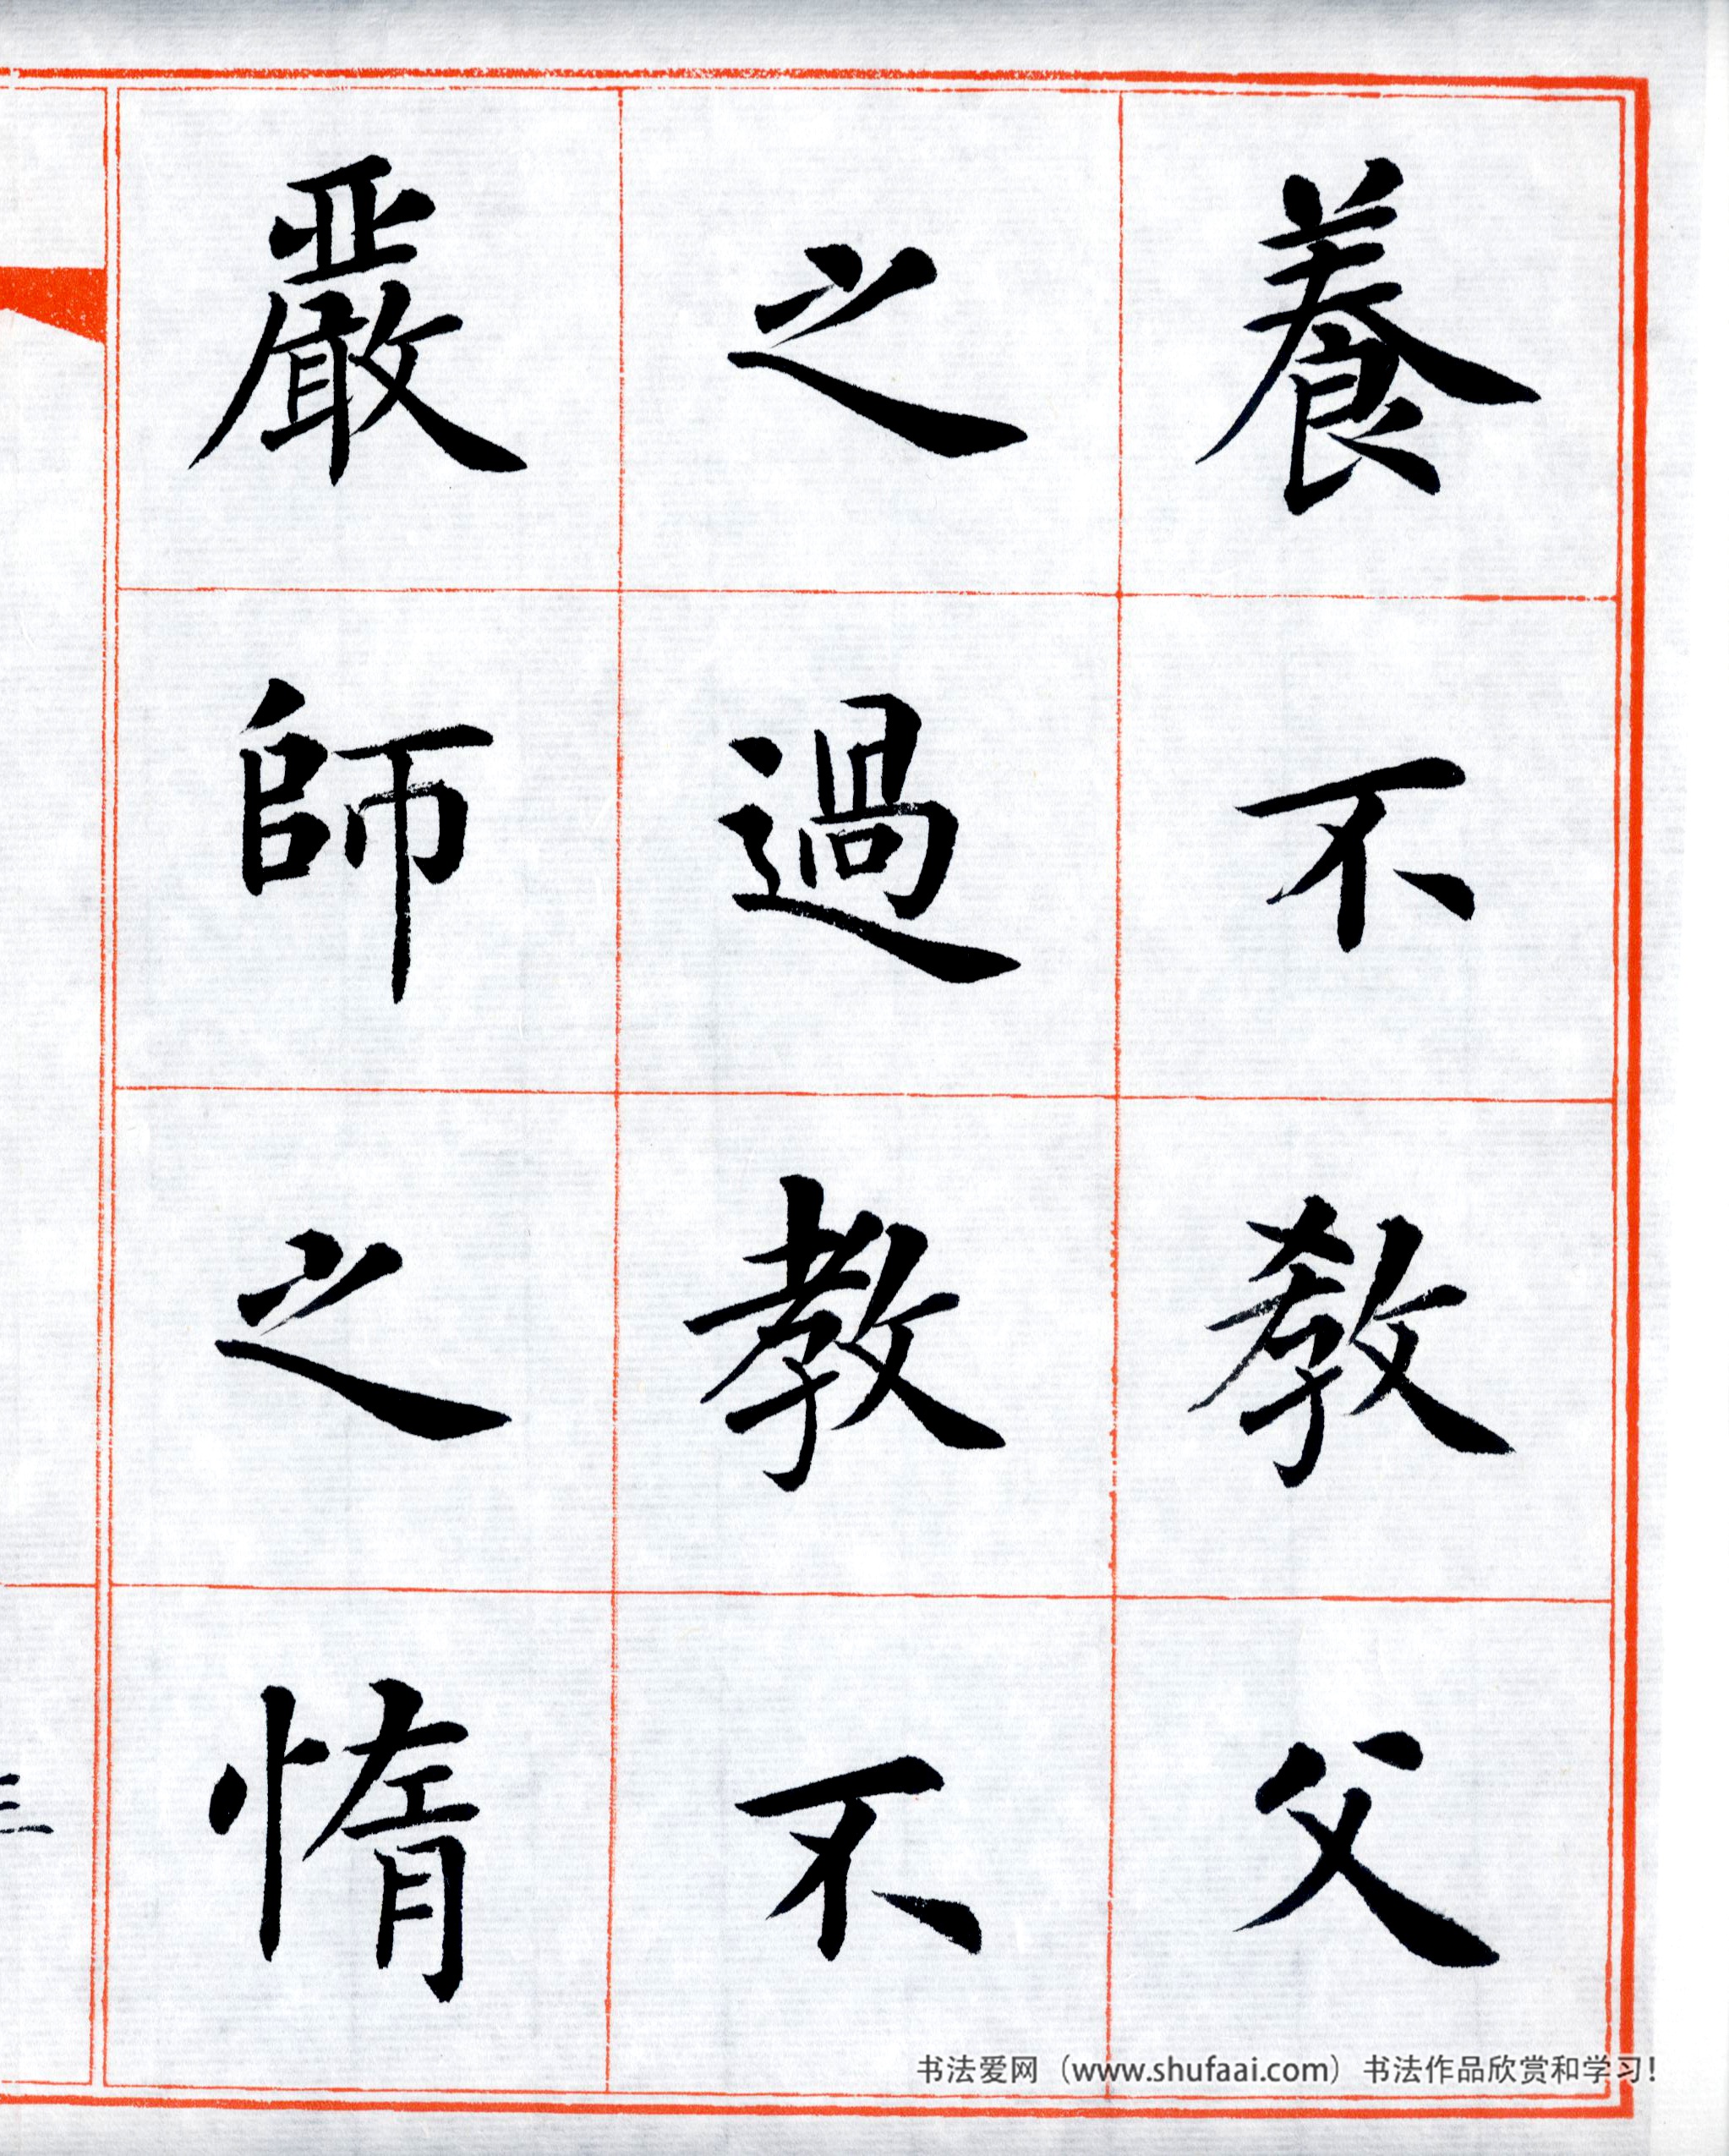 養不敎父
之過教不
嚴師之惰
三
书法爱网（www.shufaai.com）书法作品欣赏和学习！